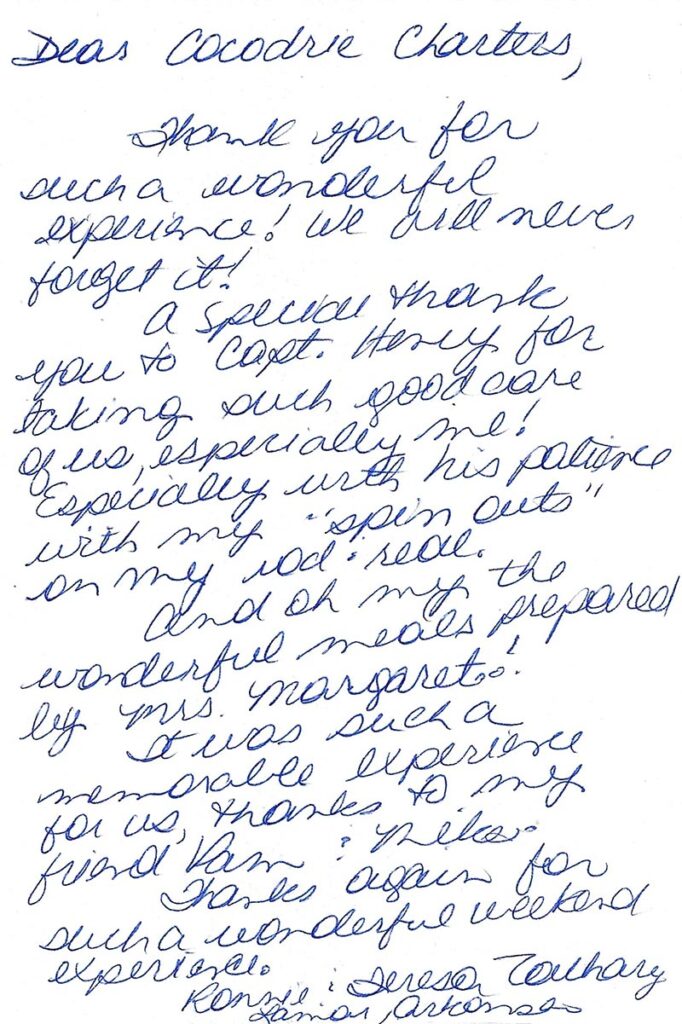 Dear Cocodrie Charters,
Thank you for
such a wonderful
experience! We will never
forget it!
A special thank
you to Capt. Henry for
taking such good care
of us, especially me!
Especially with his patience
with my "spin outs"
on my rod & real.
And oh my the
wonderful meals prepared
by Mrs. Margaret!
It was such a
memorable experience
for us, thanks to my
friend Pam & Mike.
Thanks again for
such a wonderful weekend
experience.
Ronnie & Teresa Zachary
Lamar, Arkansas